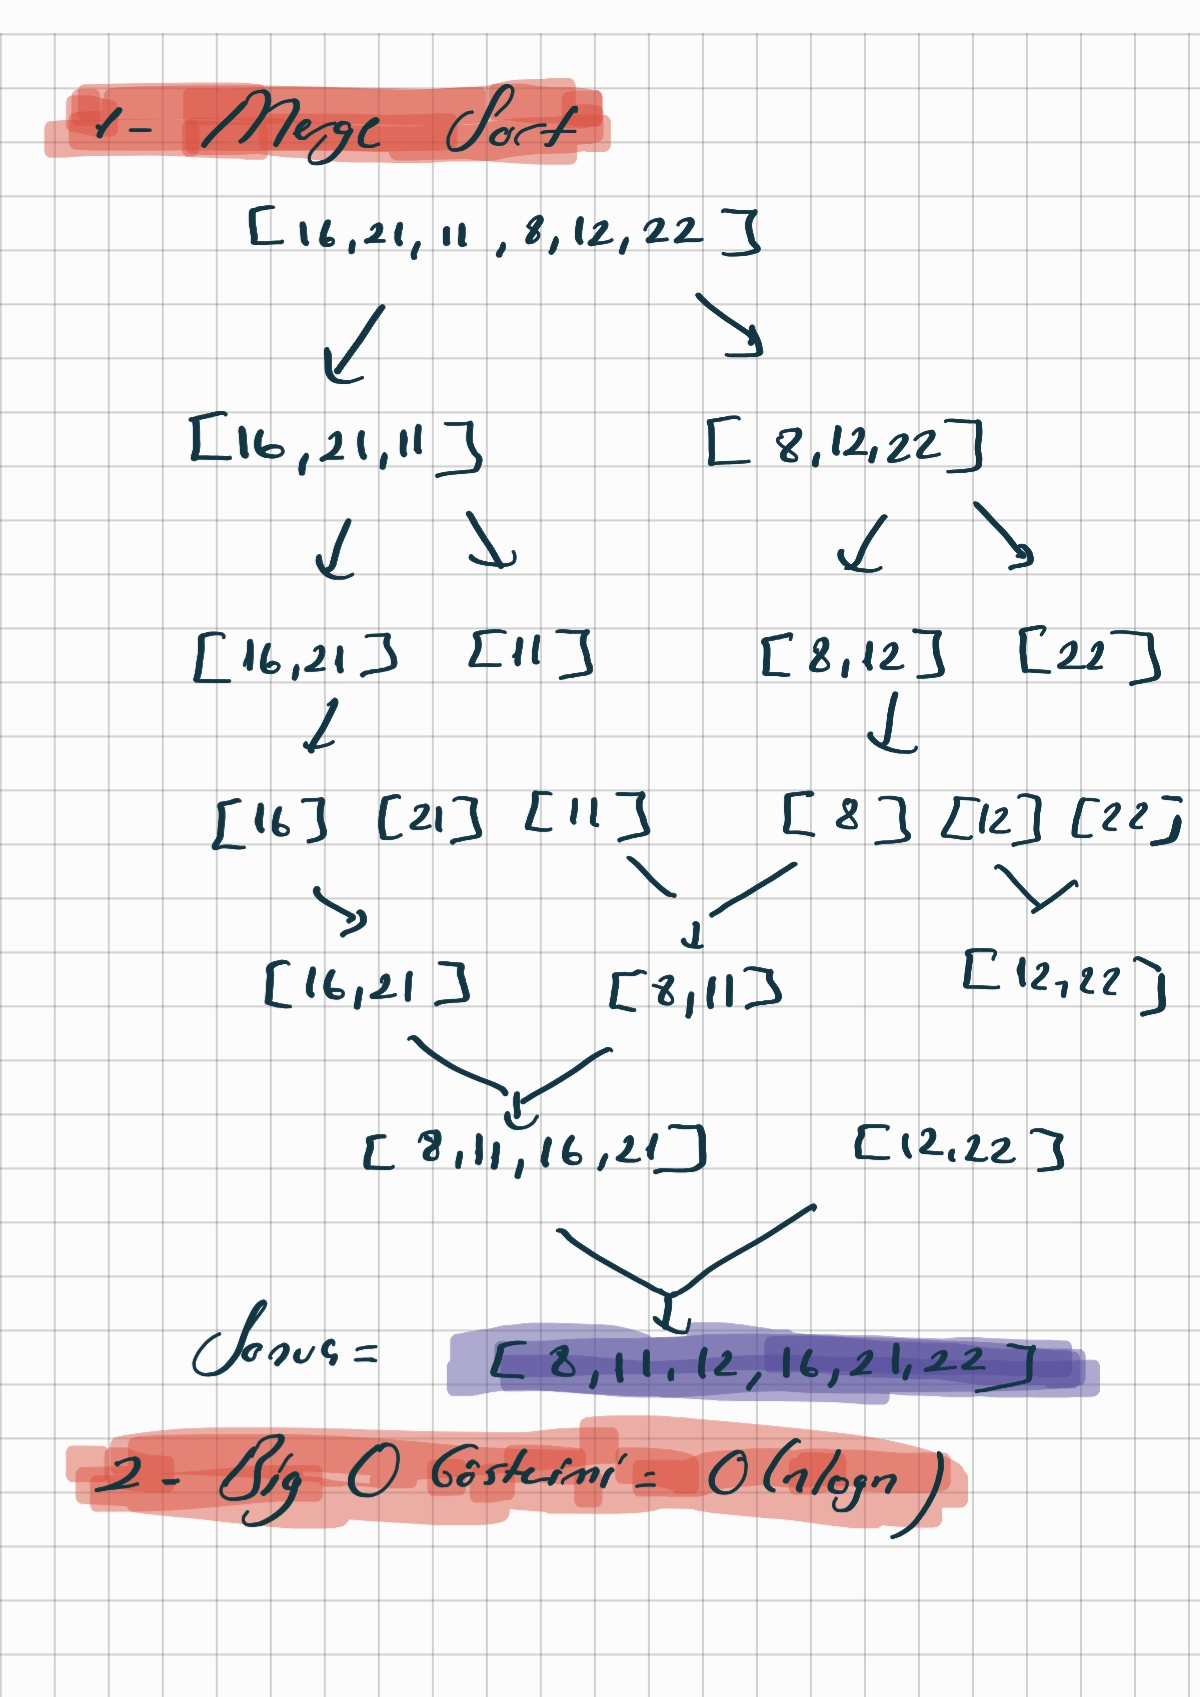 1- Merge Sort
[16,21,11,8,12,22]
[16,21,11] [8,12,22]
[16,21] [11] [8,12] [22]
[16] [21] [11] [8] [12] [22]
[16,21] [8,11] [12,22]
[8,11,16,21] [12,22]
Sonuç= [8,11,12,16,21,22]
2- Big O Gösterimi= O(nlogn)